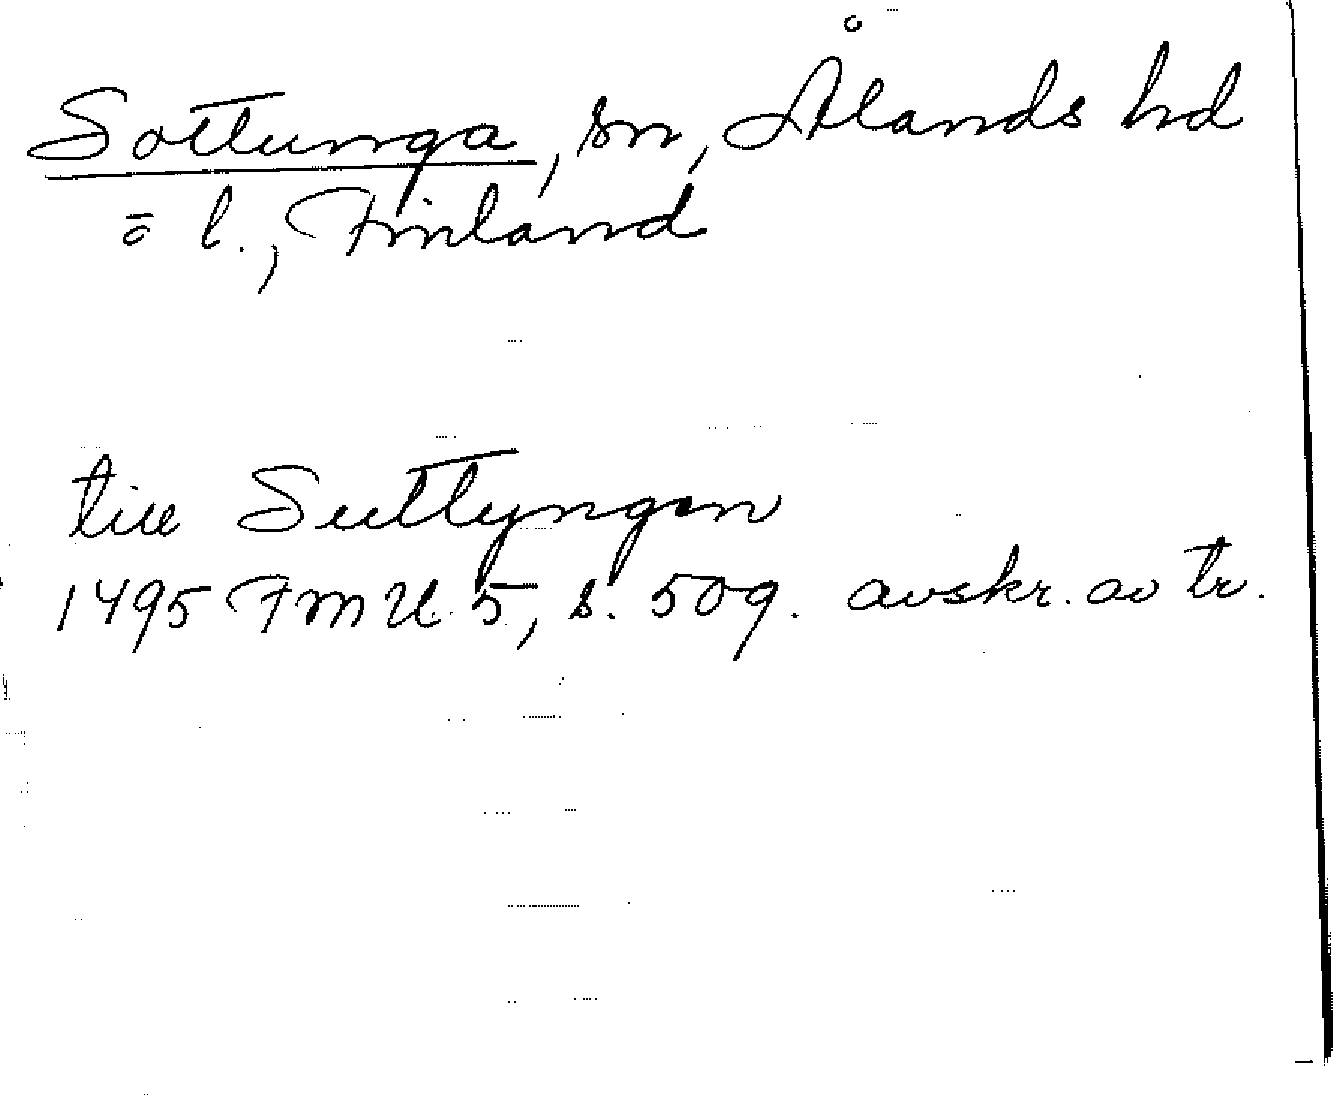 Sottunga, sn, Ålands hd
o l., Finland
till Suttyngen
1495 FMU 5, s. 509. avskr. av tr.